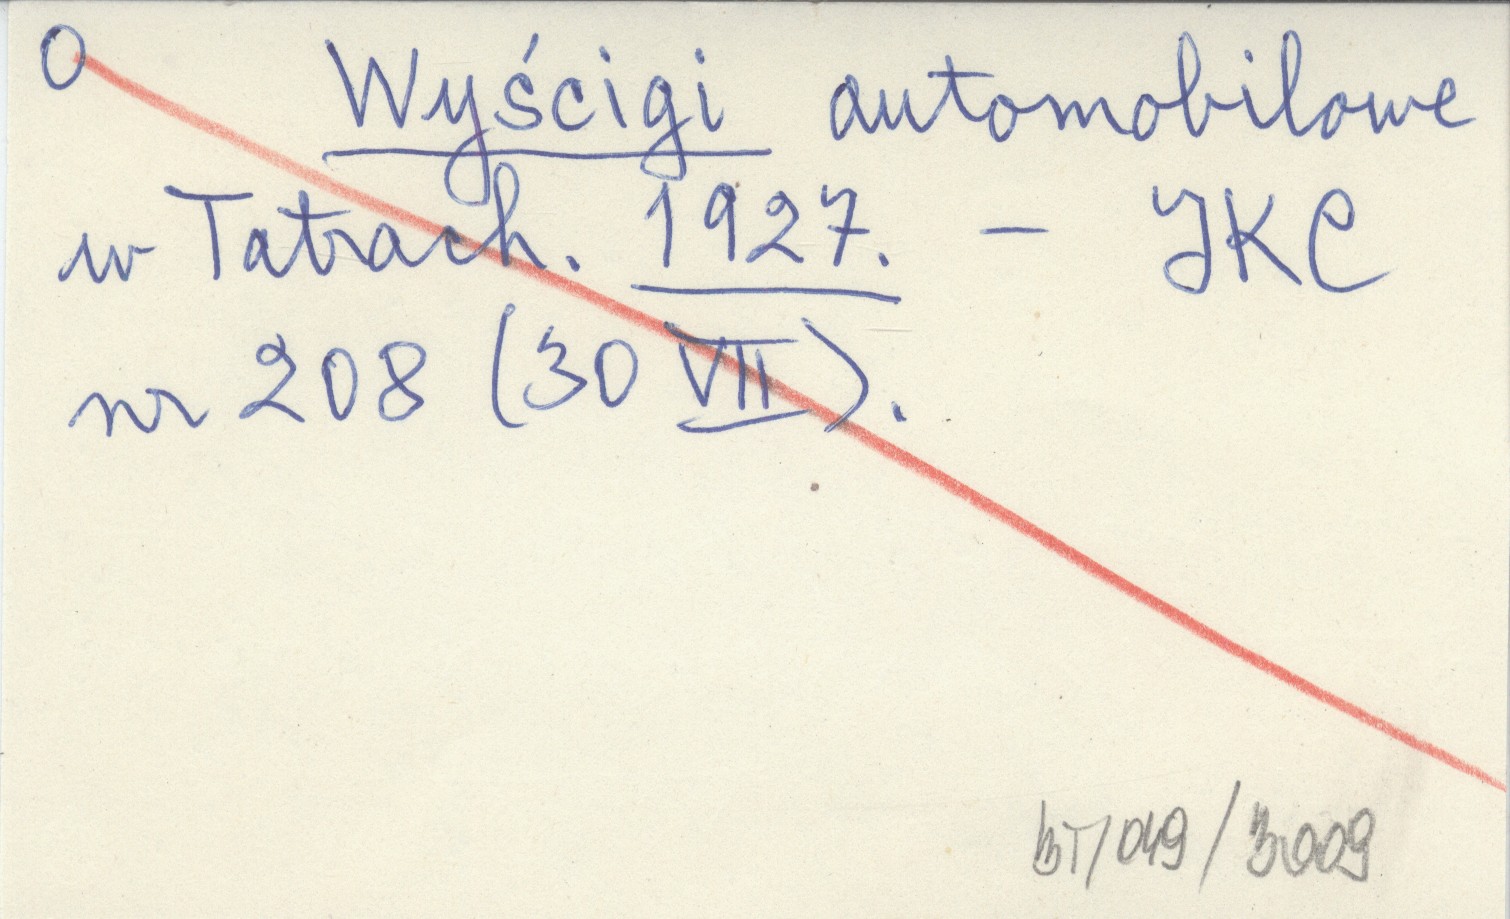 O Wyścigi automobilowe
w Tatrach. 1927. – IKC
nr 208 (30 VII).
BT/049/3009